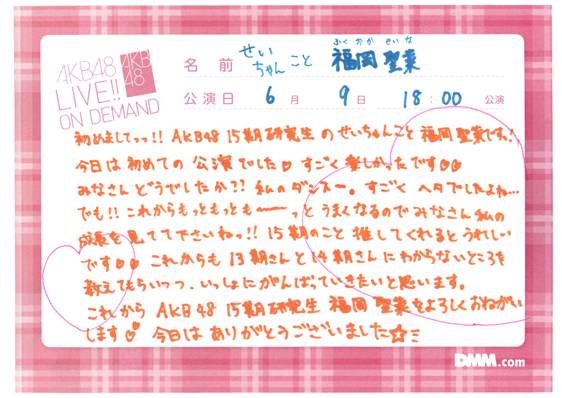 AKB48
LIVE!!
ON DEMAND
AKB
48
名前 せいちゃんこと 福岡聖菜
ふくおかせいな
公演日 6月 9日 18:00 公演
初めましてっっ!! AKB48 15期研究生のせいちゃんこと 福岡聖菜です!
今日は初めての公演でした♡ すごく楽しかったです♡♡
みなさんどうでしたか?? 私のダンスー。すごくヘタでしたよね…
でも!! これからもっともっとも――っとうまくなるのでみなさん私の
成長を見てて下さいねっ!! 15期のこと推してくれるとうれしい…
です♡♡ これからも13期さんと14期さんにわからないところを
教えてもらいつつ、いっしょにがんばっていきたいと思います。
これから AKB48 15期研究生 福岡聖菜をよろしくおねがい
します♡ 今日はありがとうございました☆ミ
DMM.com